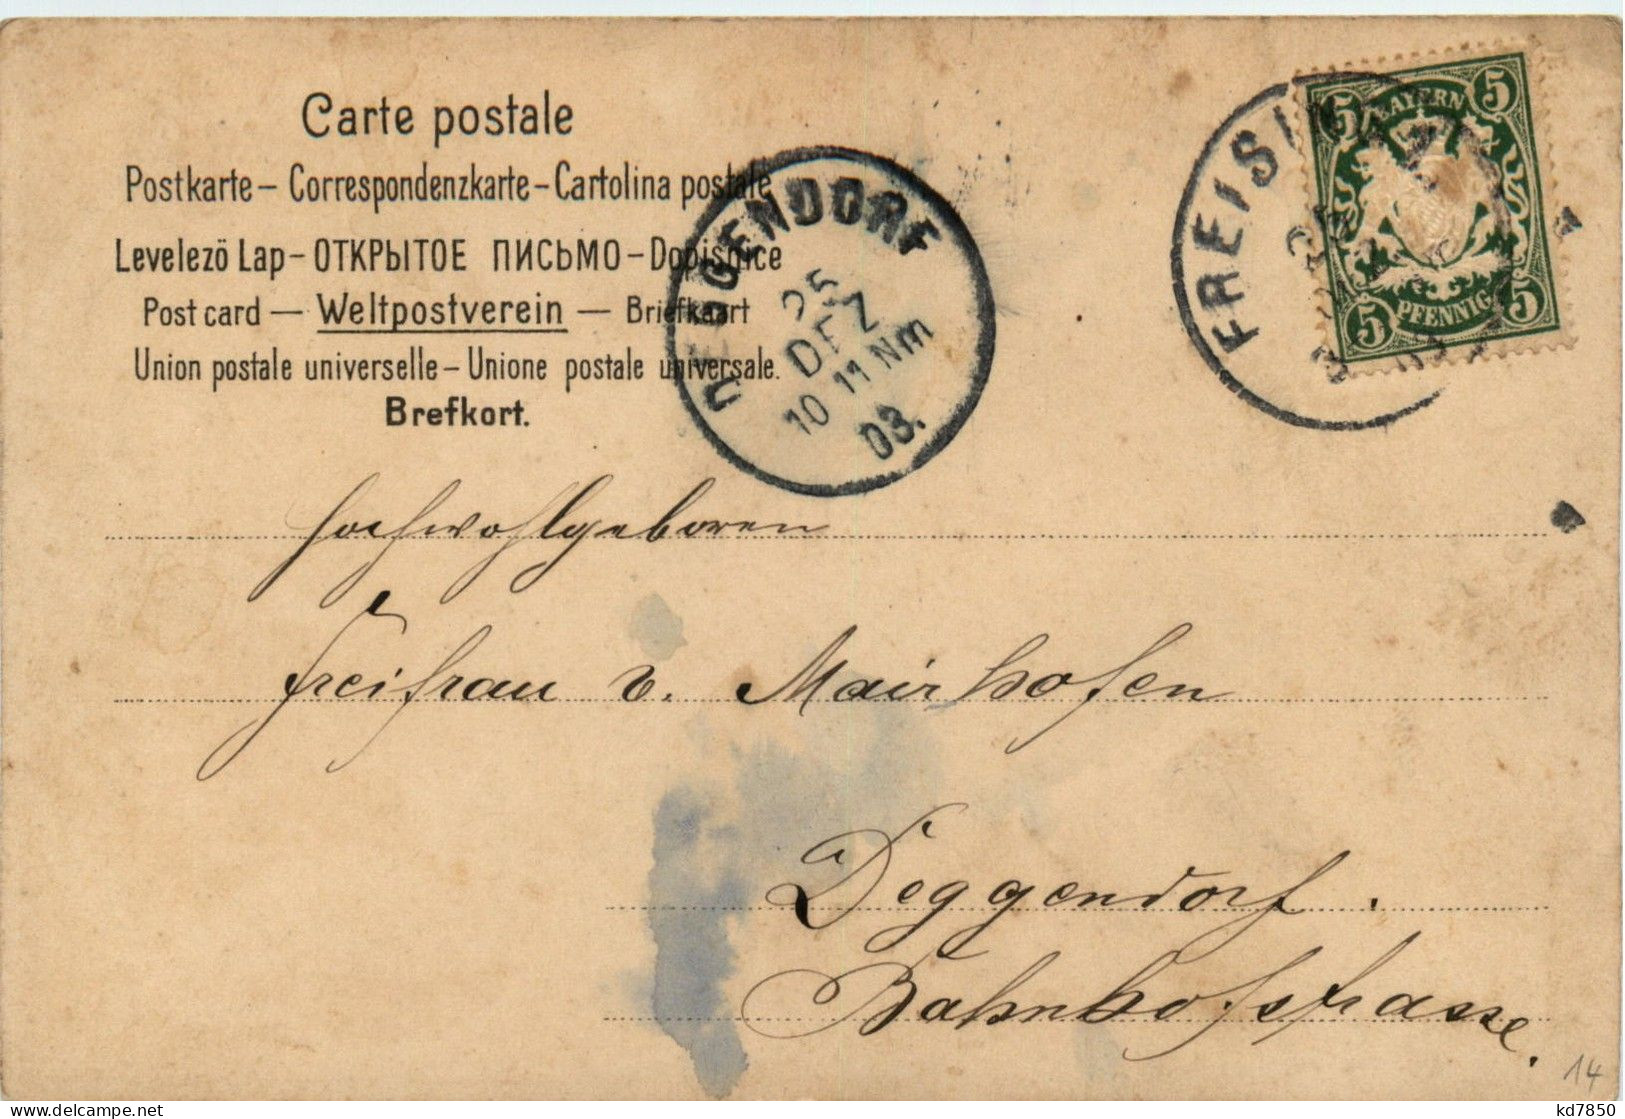 Carte postale
Postkarte – Correspondenzkarte – Cartolina postale
Levelezö Lap – ОТКРЫТОЕ ПИСЬМО – Dopisnice
Post card — Weltpostverein — Briefkaart
Union postale universelle – Unione postale universale.
Brefkort.
DEGGENDORF
25
DEZ
10 11 Nm
03.
FREISING
5 BAYERN 5
5 PFENNIG 5
Hochwohlgeboren
Freifrau v. Mairhofen
Deggendorf.
Bahnhofstrasse.
14
kd7850